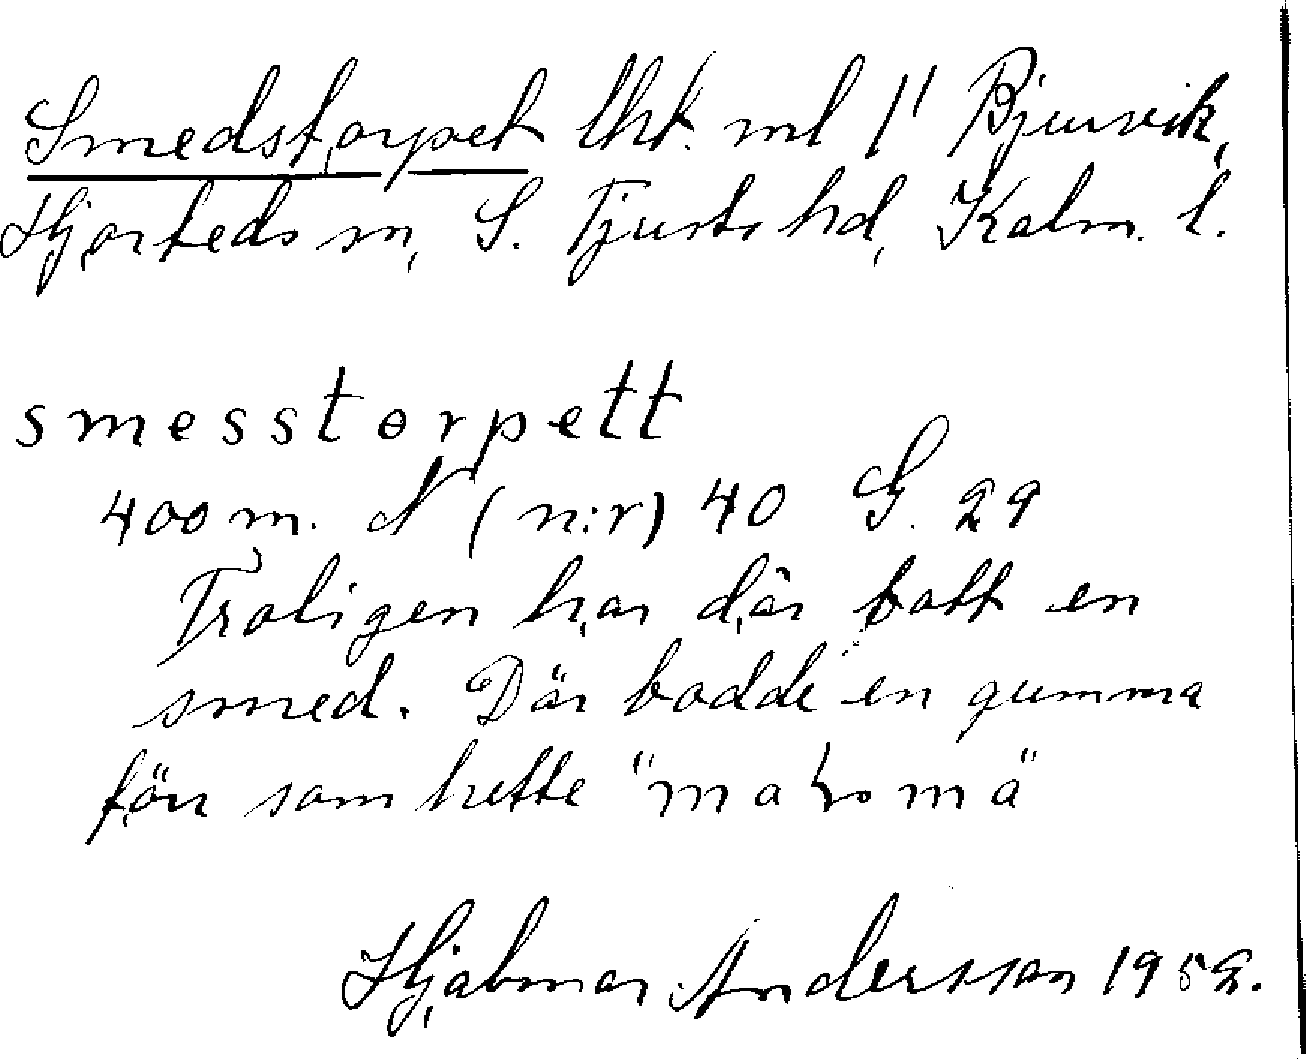 Smedstorpet lht. ml 1" Bjurvik,
Hjorteds sn, S. Tjusts hd, Kalm. l.
smesstorpett
400 m. N (n:r) 40 G. 29
Troligen har där bott en
smed. Där bodde en gumma
förr som hette "
Hjalmar Andersson 1952.